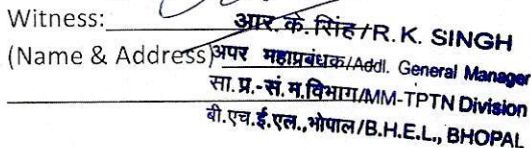 Witness:
आर. के. सिंह/R. K. SINGH
(Name & Address)
अपर महाप्रबंधक/Addl. General Manager
सा.प्र.-सं.म.विभाग/MM-TPTN Division
बी.एच.ई.एल.,भोपाल/B.H.E.L., BHOPAL